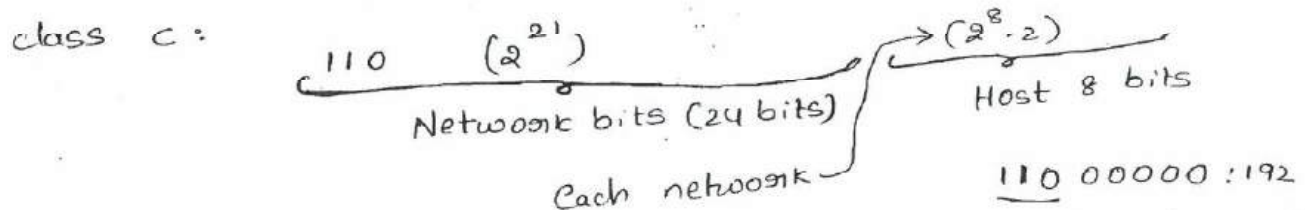 class c: 110 (2^21) → (2^8.2)
Network bits (24 bits) Host 8 bits
Each network
110 00000 : 192